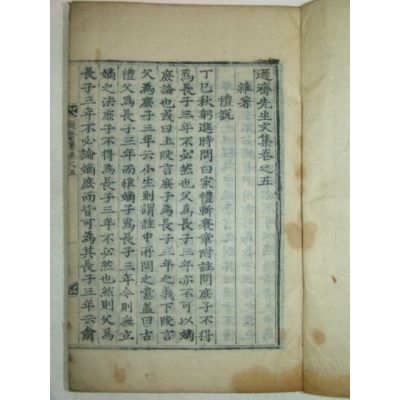 遯齋先生文集卷之五
雜著
禮說
丁巳秋躬進時問曰家禮斬衰章附註問庶子不得
爲長子三年不必然也父爲長子三年亦不可以嫡
庶論也或曰上段言庶子爲長子三年之義下段言
父爲庶子三年云小生則謂註中所問之意蓋曰古
禮父爲長子三年而惟嫡子爲長子三年今則無立
嫡之法庶子不得爲長子三年不必然也然則父爲
長子三年不必論嫡庶而皆可爲其長子三年云肅